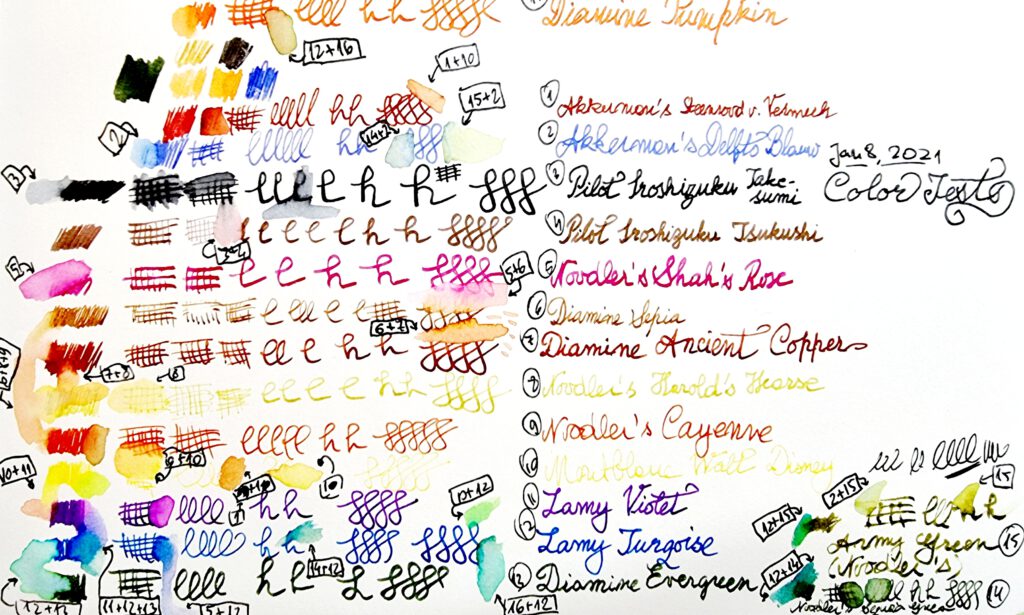 Diamine Pumpkin
12+16
1+10
15+2
1
Akkerman's Steenrood v. Vermeer
2
14+2
2
Akkerman's Delfts Blauw
Jan 8, 2021
Color Tests
3
3
Pilot Iroshizuku Take-sumi
4
Pilot Iroshizuku Tsukushi
3+4
5
5
Noodler's Shah's Rose
5+6
6
Diamine Sepia
6+7
7
Diamine Ancient Copper
7+8
8
8
Noodler's Harold's Hearse
9
Noodler's Cayenne
9+10
10
10
Montblanc Walt Disney
10+11
11
Lamy Violet
10+12
12
Lamy Turqoise
14+12
13
Diamine Evergreen
11+12+13
15+12
16+12
15
2+15
12+15
Army Green
15
(Noodler's)
12+14
14
Noodler's